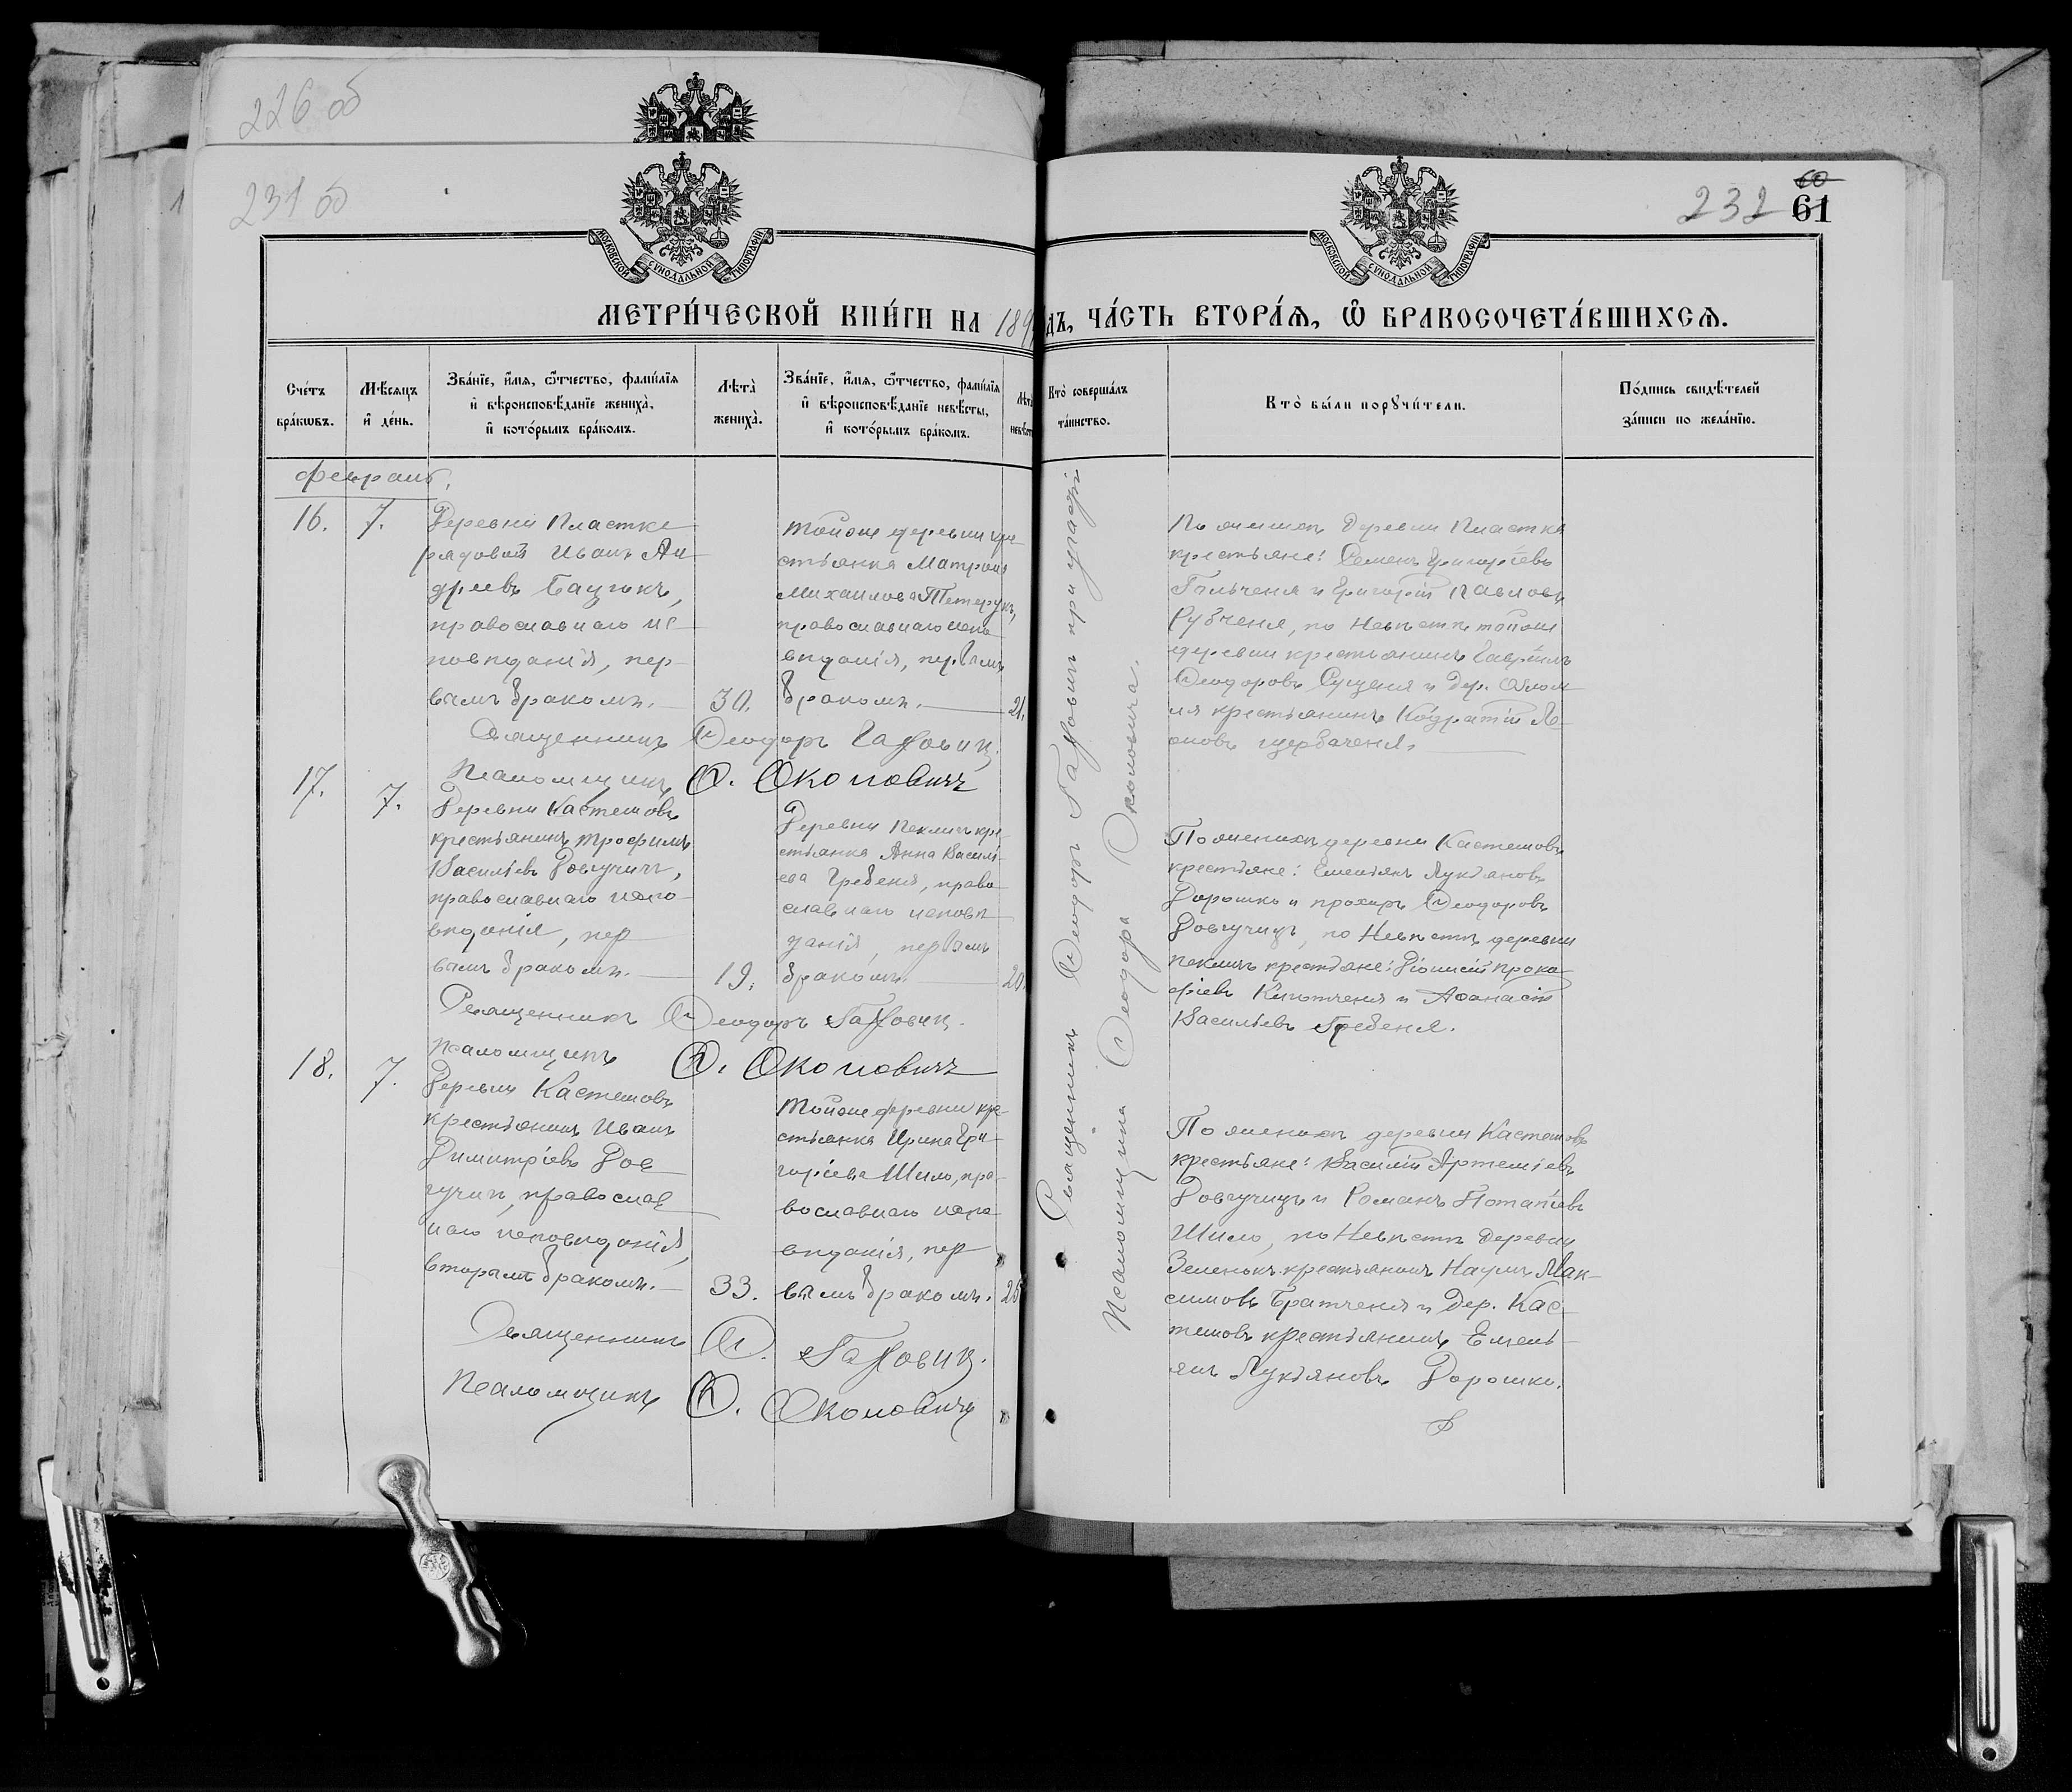 226 об
231 об
232
60
61
МОСКОВСКОЙ СѴНОДАЛЬНОЙ ТИПОГРАФІИ
МОСКОВСКОЙ СѴНОДАЛЬНОЙ ТИПОГРАФІИ
МЕТРИ́ЧЕСКОЙ КНИ́ГИ НА 189 ДЪ, ЧА́СТЬ ВТОРА́Ѧ, Ѽ БРАКОСОЧЕТА́ВШИХСѦ.
Сче́тъ бра́кѡвъ.
Мѣ́сѧцъ и҆ де́нь.
Зва́нїе, и҆́мѧ, ѻ҆́тчество, фами́лїѧ
и҆ вѣроисповѣ́данїе жениха̀,
и҆ кото́рымъ бра́комъ.
Лѣта̀ жениха̀.
Зва́нїе, и҆́мѧ, ѻ҆́тчество, фами́лїѧ
и҆ вѣроисповѣ́данїе невѣ́сты,
и҆ кото́рымъ бра́комъ.
Лѣта
невѣст
Кто̀ соверша́лъ
та́инство.
Кто̀ бы́ли порꙋчи́тели.
По́дпись свидѣ́телей
за́писи по жела́нїю.
Февраль.
16.
7.
Деревни Пластке
рядовой Иванъ Ан
дреевъ Бацукъ,
православнаго ис
повѣданія, пер
вымъ бракомъ.
30.
Тойже деревни кре
стьянка Матрона
Михаилова Тетерукъ,
православнаго испо
вѣданія, первымъ
бракомъ.
21.
По женихѣ деревни Пластка
крестьяне: Семенъ Григоріевъ
Гольченя и Григорій Павловъ
Рубченя, по Невѣстѣ тойже
деревни крестьянинъ Гавріилъ
Ѳеодоровъ Сущеня и дер.
ля крестьянинъ Кодратій Яе
оновъ Щербаченя.
Священникъ Ѳеодоръ Гаховичъ.
Псаломщикъ Ѳ. Околовичъ
17.
7.
Деревни Кастешовъ
крестьянинъ Трофимъ
Васильевъ Довгучичъ,
православнаго испо
вѣданія, пер
вымъ бракомъ.
19.
Деревни Пекличъ кре
стьянка Анна Василь
ева Гребеня, право
славнаго исповѣ
данія, первымъ
бракомъ.
20.
По женихѣ деревни Кастешовъ
крестьяне: Емельянъ Лукьяновъ
Дорошко и Прохоръ Ѳеодоровъ
Довгучицъ, по Невѣстѣ деревни
Пекличъ крестьяне: Діонисій Проко
фіевъ и Аѳанасій
Васильевъ Гребеня.
Священникъ Ѳеодоръ Гаховичъ.
Псаломщикъ Ѳ. Околовичъ
18.
7.
Деревни Кастешовъ
крестьянинъ Иванъ
Димитріевъ Дов
гучичъ, православ
наго исповѣданія,
вторымъ бракомъ.
33.
Тойже деревни кре
стьянка Ирина Гри
горіева Шило, пра
вославнаго испо
вѣданія, пер
вымъ бракомъ.
25
По женихѣ деревни Кастешовъ
крестьяне: Василій Артеміевъ
Довгучицъ и Романъ Потапіевъ
Шило, по Невѣстѣ деревни
Зеленокъ крестьянинъ Наумъ Мак
симовъ Братченя и дер. Кас
тешовъ крестьянинъ Емель
янъ Лукьяновъ Дорошко.
Священникъ Ѳ. Гаховичъ.
Псаломщикъ Ѳ. Околовичъ
Священникъ Ѳеодоръ Гаховичъ при участіи
Псаломщика Ѳеодора Околовича.